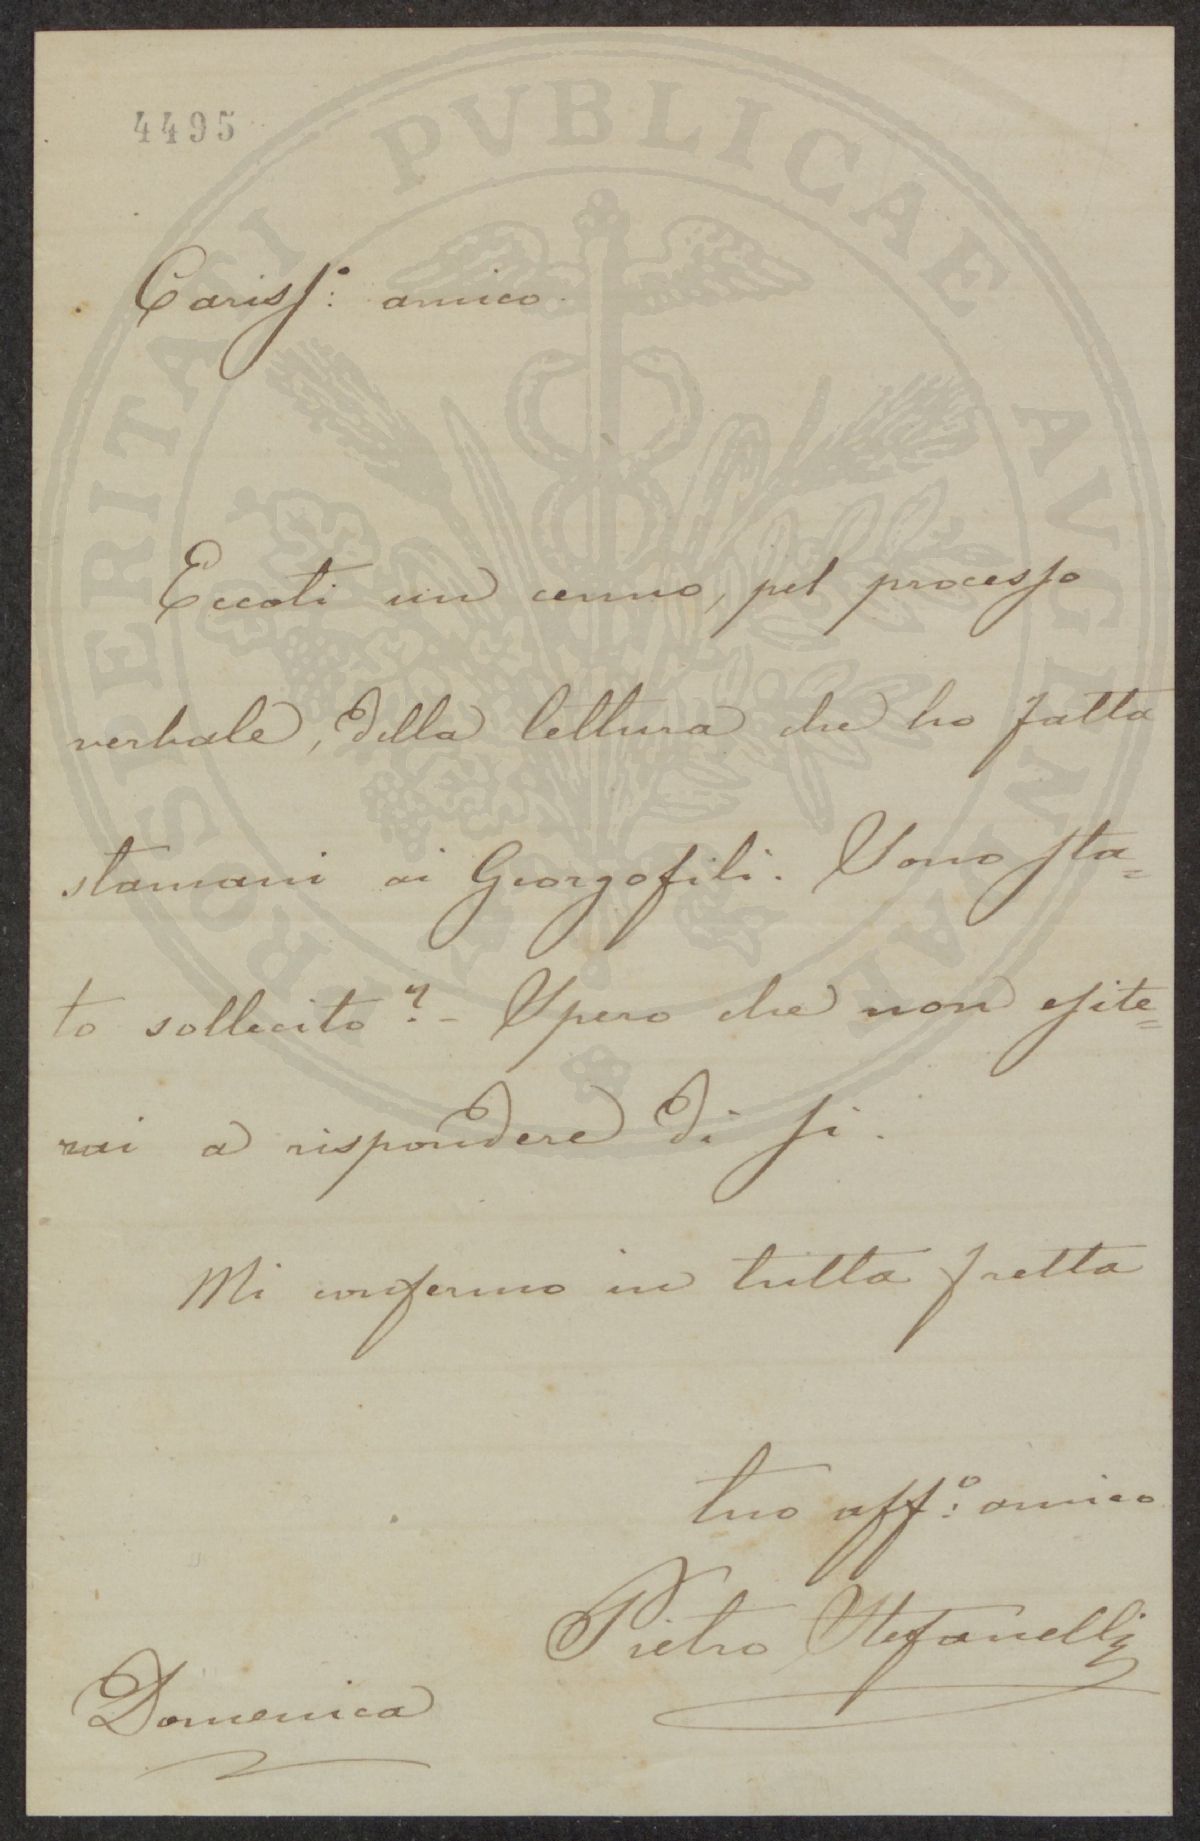 4495
PROSPERITATI PVBLICAE AVGENDAE
Cariss.º: amico.
Eccoti un cenno, pel processo
verbale, della lettura che ho fatta
stamani ai Georgofili. Sono sta=
to sollecito? - Spero che non esite=
rai a rispondere di si.
Mi confermo in tutta fretta
tuo aff.º: amico
Pietro Stefanelli
Domenica